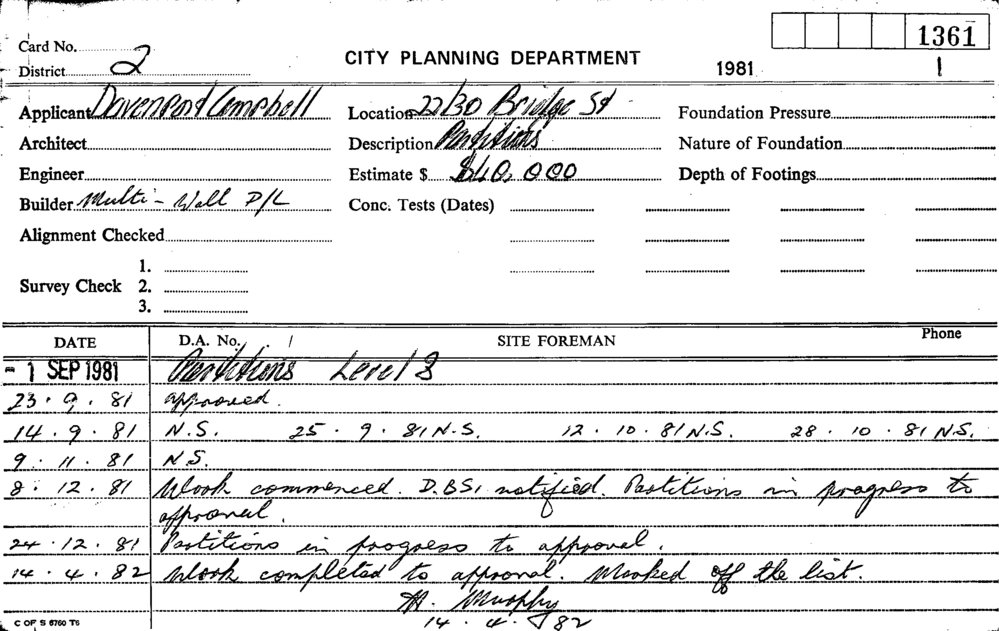 1361
Card No.
CITY PLANNING DEPARTMENT
District 2
1981 1
Applicant Davenport Campbell Location 22/30 Bridge St Foundation Pressure
Architect Description Partitions Nature of Foundation
Engineer Estimate $ $40,000 Depth of Footings
Builder Multi-Wall P/L Conc. Tests (Dates)
Alignment Checked
1.
Survey Check 2.
3.
DATE D.A. No. SITE FOREMAN Phone
- 1 SEP 1981 Partitions Level 8
23.9.81 approved.
14.9.81 N.S. 25.9.81 N.S. 12.10.81 N.S. 28.10.81 N.S.
9.11.81 N.S.
8.12.81 Work commenced. D.B.S. notified. Partitions in progress to
approval.
24.12.81 Partitions in progress to approval.
14.4.82 Work completed to approval. Marked off the list.
Murphy
14.4.82
C OF S 6760 T6